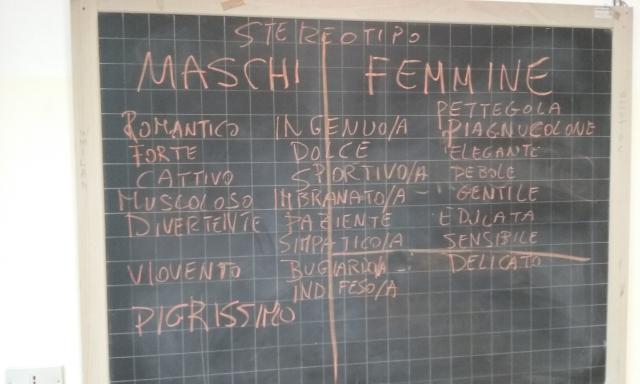 STEREOTIPO
MASCHI FEMMINE
PETTEGOLA
ROMANTICO INGENUO/A PIAGNUCOLONE
FORTE DOLCE ELEGANTE
CATTIVO SPORTIVO/A DEBOLE
MUSCOLOSO IMBRANATO/A GENTILE
DIVERTENTE PAZIENTE EDUCATA
SIMPATICO/A SENSIBILE
VIOVENTO BUGIARDO/A DELICATO
INDIFESO/A
PIGRISSIMO